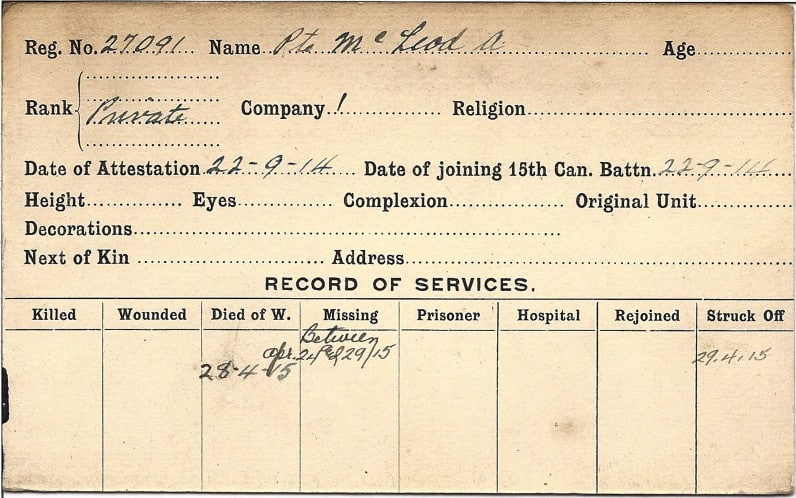 Reg. No. 27091 Name Pte Mc Leod A Age
Rank Private Company 1 Religion
Date of Attestation 22-9-14 Date of joining 15th Can. Battn. 22-9-14
Height Eyes Complexion Original Unit
Decorations
Next of Kin Address
RECORD OF SERVICES.
Killed Wounded Died of W. Missing Prisoner Hospital Rejoined Struck Off
Between
Apr. 24 & 29/15 29.4.15
28-4-15